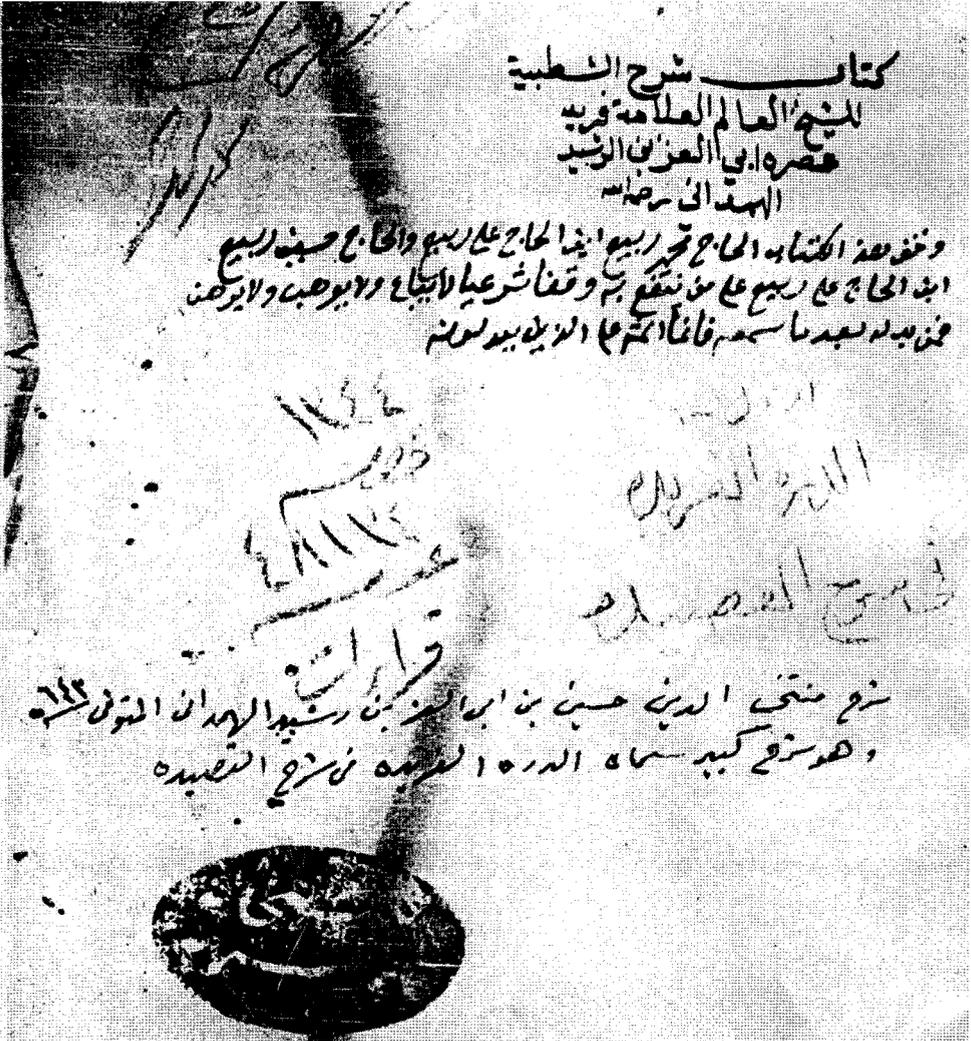 كتاب شرح الشطبية
للشيخ العالم العلامة فريد
عصره ابي العز بن الرشيد
الهمداني رحمه الله
وقف هذا الكتاب الحاج محمد ربيع ابن الحاج علي ربيع والحاج حسين ربيع
ابن الحاج علي ربيع على من ينتفع به وقفا شرعيا لا يباع ولا يوهب ولا يرهن
فمن بدله بعدما سمعه فانما اثمه على الذين يبدلونه
الدرة الفريدة
في شرح القصيدة
قراءات
شرح منتخب الدين حسين بن ابى العز بن رشيد الهمدانى المتوفى ٦٤٣
وهو شرح كبير سماه الدره الفريده فى شرح القصيده